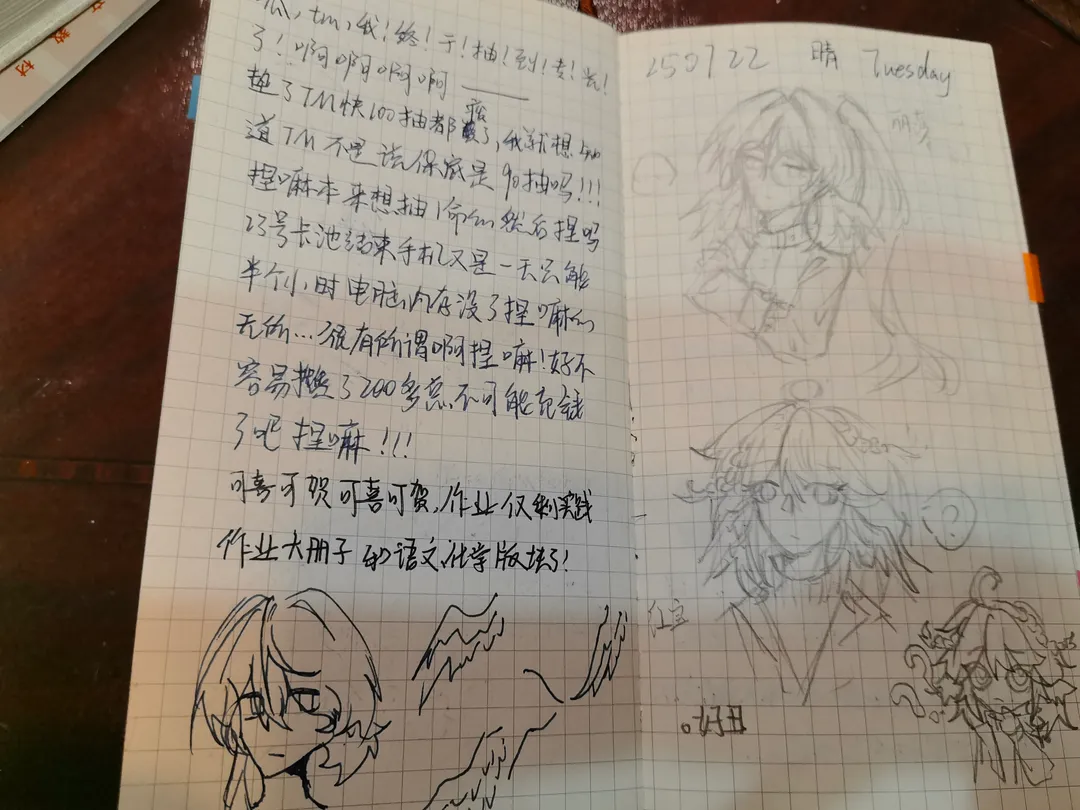 教材
瓜,tm,我!终!于!抽!到!专!光!
了!啊啊啊啊
垫了TM快100抽都疯了,我就想知
道TM不是说保底是90抽吗!!!
捏嘛本来想抽1命的然后捏吗
23号卡池结束手机又是一天只能
半个小时电脑内存没了捏嘛的
无所...很有所谓啊捏嘛!好不
容易攒了200多总不可能记错
了吧捏嘛!!!
可喜可贺可喜可贺,作业仅剩实践
作业大册子和语文、化学版块了!
250722 晴 Tuesday